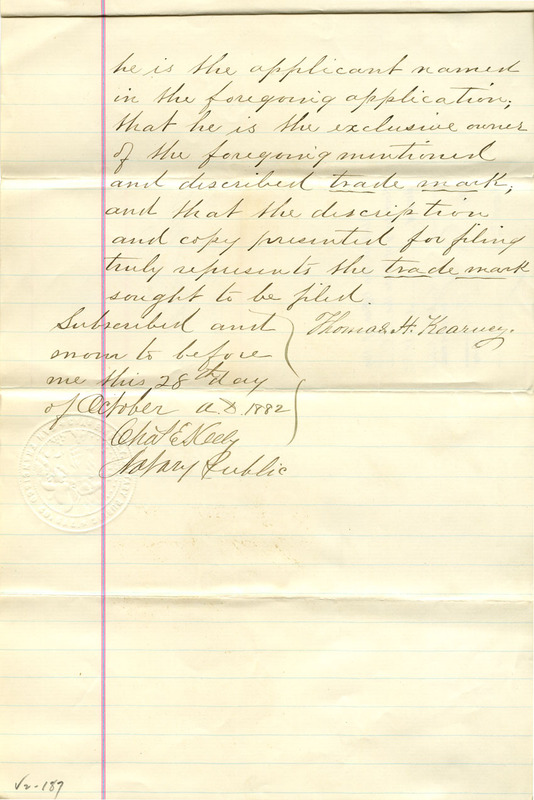 he is the applicant named
in the foregoing application;
that he is the exclusive owner
of the foregoing mentioned
and described trade mark;
and that the discription
and copy presented for filing
truly represents the trade mark
sought to be filed.
Subscribed and
sworn to before
me this 28th day
of October A.D. 1882
Thomas H. Kearney.
Chas E Keely
Notary Public
V2-187